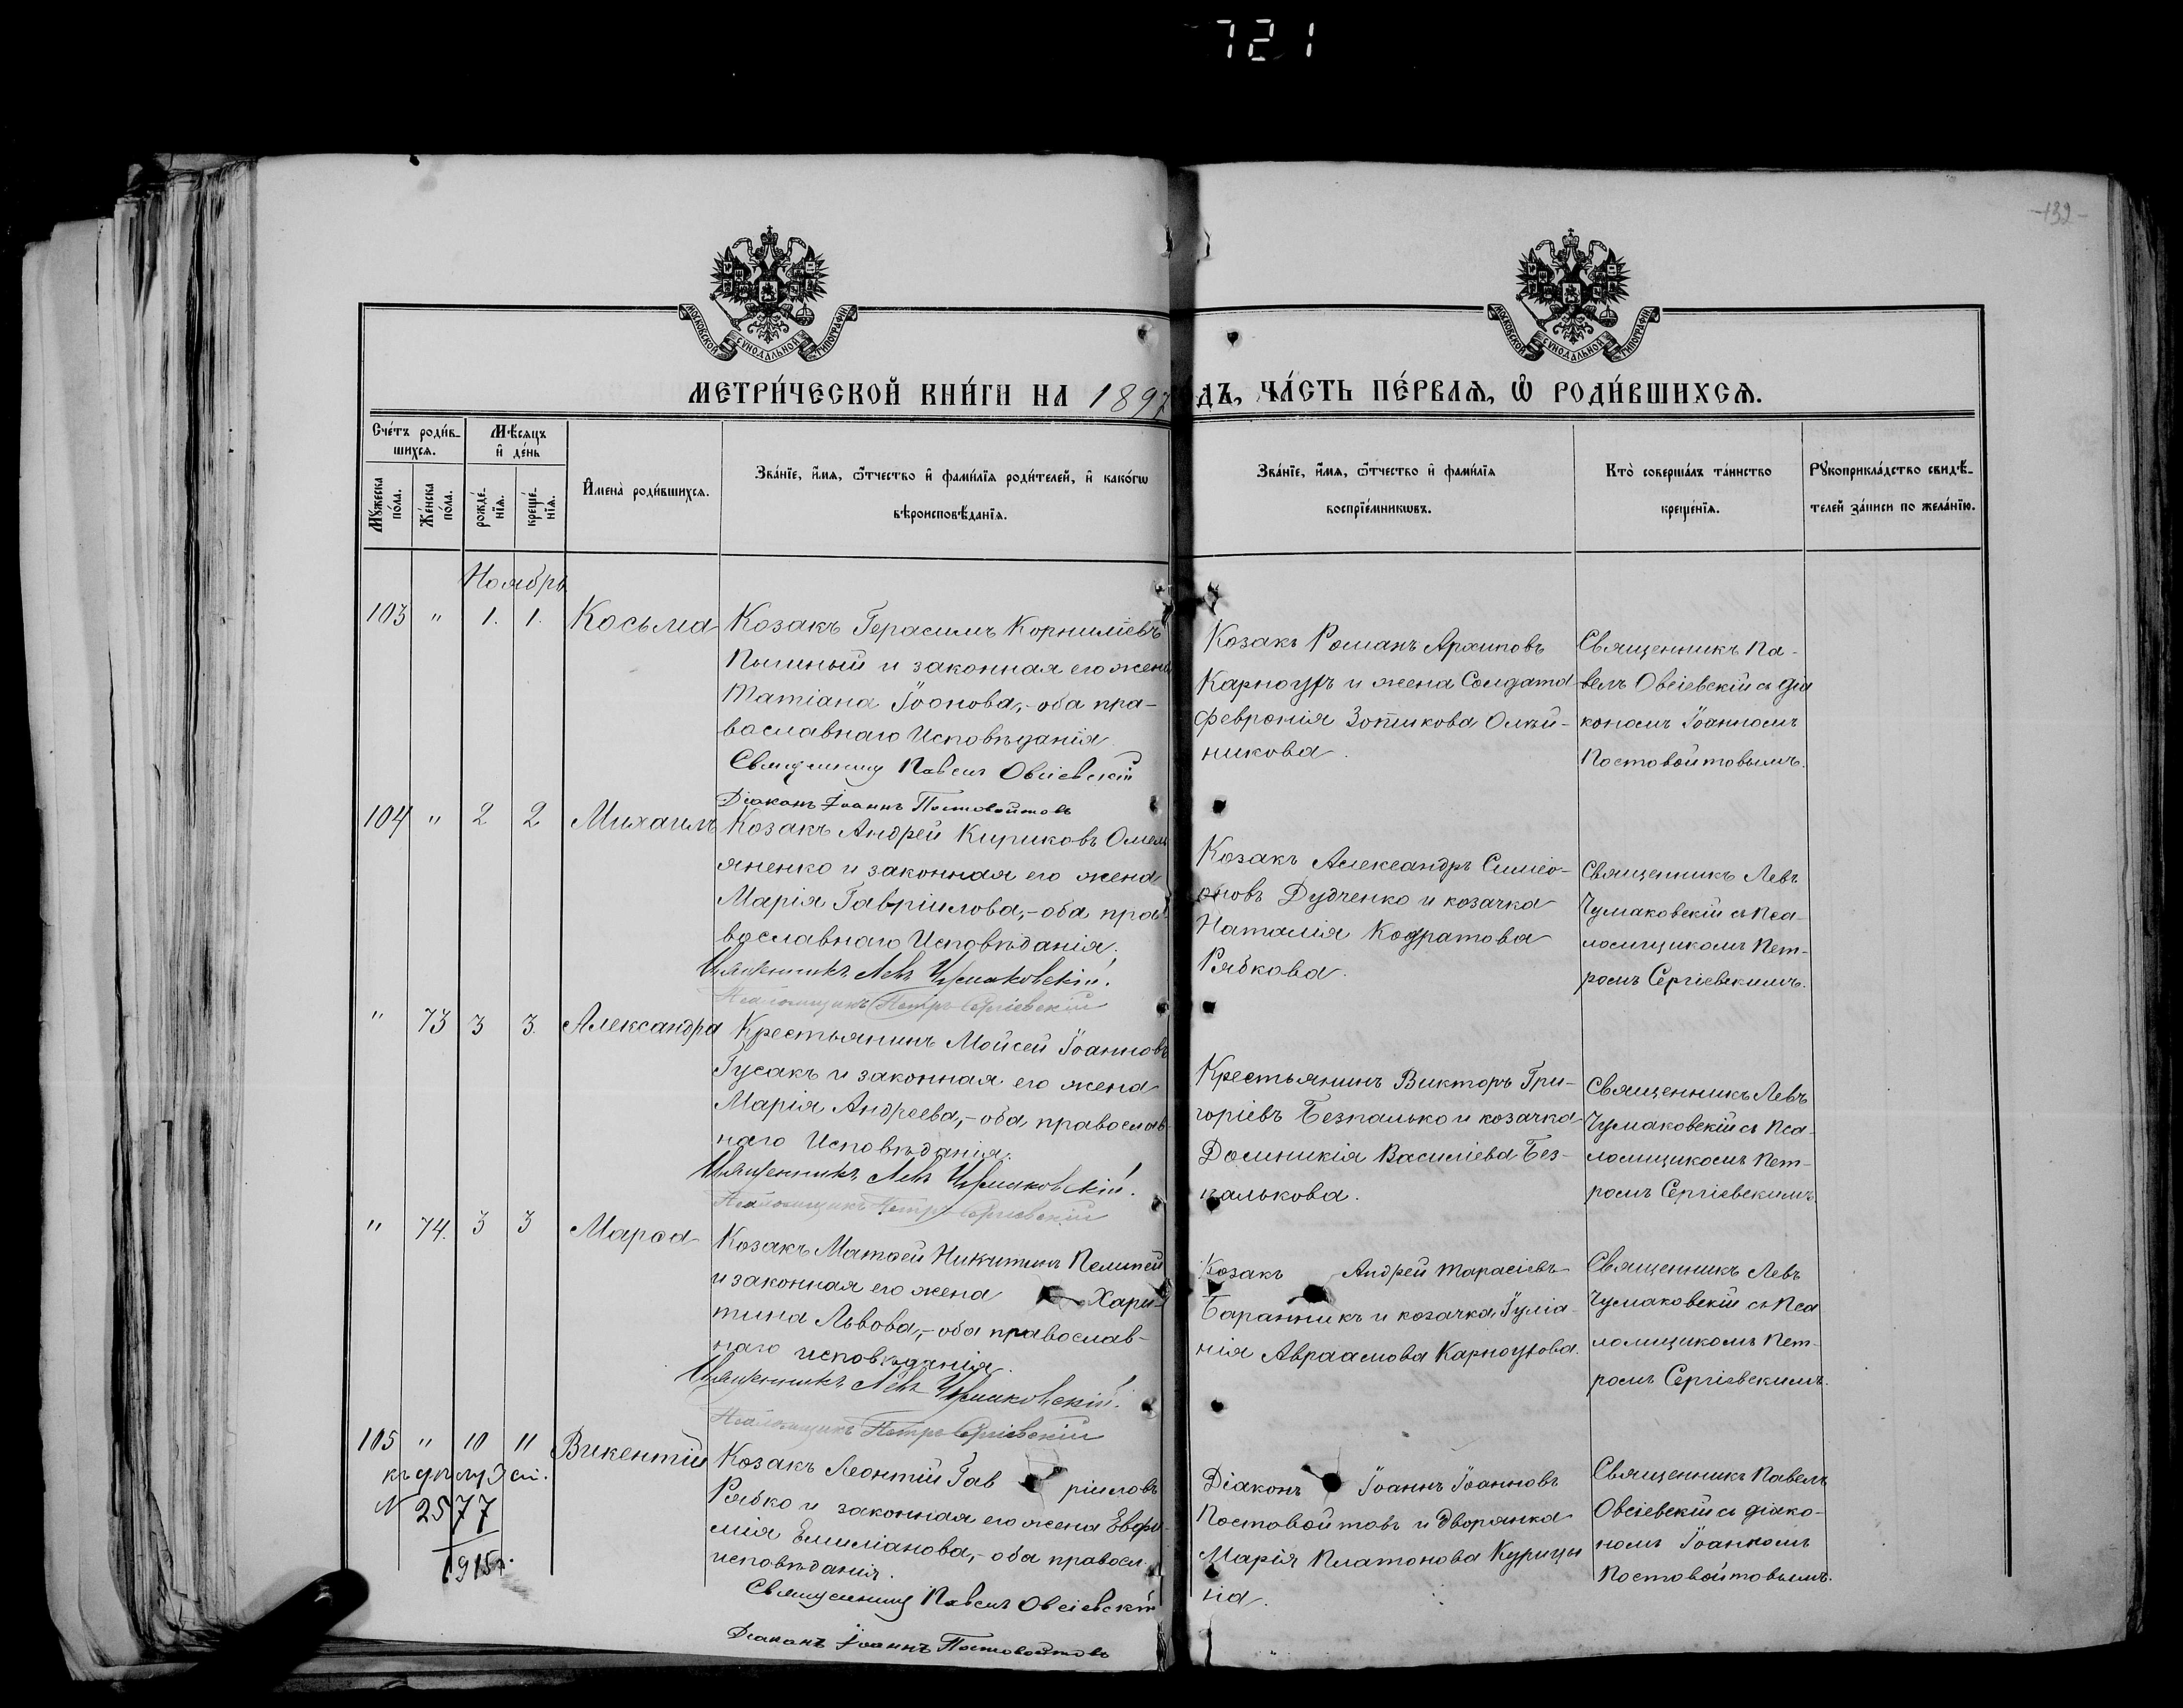 721
132
МОСКОВСКОЙ СѴНОДАЛЬНОЙ ТИПОГРАФІИ
МОСКОВСКОЙ СѴНОДАЛЬНОЙ ТИПОГРАФІИ
МЕТРИ́ЧЕСКОЙ КНИ́ГИ НА 1897
дъ, ЧА́СТЬ ПЕ́РВАѦ, Ѡ҆ РОДИ́ВШИХСѦ.
Сче́тъ роди́в-
шихсѧ.
Мѣ́сѧцъ
и҆ де́нь
Мꙋ́жеска
по́ла.
Же́нска
по́ла.
рожде́-
нїѧ.
креще́-
нїѧ.
И҆мена̀ роди́вшихсѧ.
Зва́нїе, и҆́мѧ, ѻ҆́тчество и҆ фамѝлїѧ роди́телей, и҆ како́гѡ
вѣроисповѣ́данїѧ.
Зва́нїе, и҆́мѧ, ѻ҆́тчество и҆ фами́лїѧ
воспрїе́мникѡвъ.
Кто̀ соверша́лъ та́инство
креще́нїѧ.
Рꙋкоприкла́дство свидѣ́-
телей за́писи по жела́нїю.
Ноябрь
103 " 1. 1. Косьма
Козакъ Герасимъ Корниліевъ
и законная его жена
Татіана Іоонова,-оба пра-
вославнаго Исповѣданія
Священникъ Павелъ Овсіевскій
Діаконъ Іоаннъ Постовойтовъ
Козакъ Романъ Архиповъ
Карноухъ и жена Солдата
Февронія Зотикова Олей-
никова.
Священникъ Па-
велъ Овсіевскій съ діа
кономъ Іоанномъ
Постовойтовымъ.
104 " 2 2 Михаилъ
Козакъ Андрей Кириковъ Омель
яненко и законная его жена
Марія Гавріилова,-оба пра-
вославнаго Исповѣданія.
Священникъ Левъ Чумаковскій.
Псаломщикъ Петръ Сергіевскій
Козакъ Александръ Симео-
новъ Дудченко и козачка
Наталія Кодратова
Рябкова.
Священникъ Левъ
Чумаковскій съ Пса-
ломщикомъ Пет-
ромъ Сергіевскимъ.
" 73 3 3. Александра
Крестьянинъ Мойсей Іоанновъ
Гусакъ и законная его жена
Марія Андреева,-оба православ-
наго Исповѣданія.
Священникъ Левъ Чумаковскій.
Псаломщикъ Петръ Сергіевскій
Крестьянинъ Викторъ Гри-
горіевъ Безпалько и козачка
Домникія Василіева Без-
палькова.
Священникъ Левъ
Чумаковскій съ Пса-
ломщикомъ Пет-
ромъ Сергіевскимъ
" 74. 3 3 Марѳа
Козакъ Матѳей Никитинъ Пелипей
и законная его жена Хари-
тина Львова,-оба православ-
наго исповѣданія.
Священникъ Левъ Чумаковскій.
Псаломщикъ Петръ Сергіевскій
Козакъ Андрей Тарасіевъ
Баранникъ и козачка Іуліа-
нія Авраамова Карноухова.
Священникъ Левъ
Чумаковскій съ Пса
ломщикомъ Пет-
ромъ Сергіевскимъ.
105 " 10 11 Викентій
N 2577
1915г.
Козакъ Леонтій Гав ріиловъ
Рябко и законная его жена Евфи-
мія Емиліанова,-оба правосл.
исповѣданія.
Священникъ Павелъ Овсіевскій
Діаконъ Іоаннъ Постовойтовъ
Діаконъ Іоаннъ Іоанновъ
Постовойтовъ и дворянка
Марія Платонова Курицы
на.
Священникъ Павелъ
Овсіевскій съ діако-
номъ Іоанномъ
Постовойтовымъ.